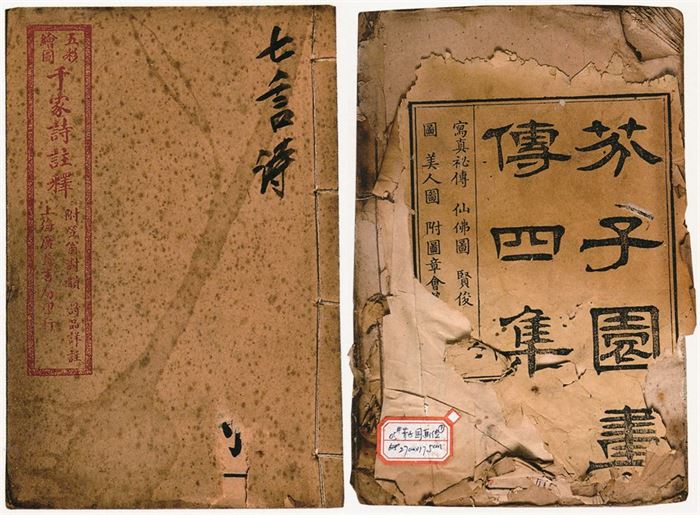 五彩
繪圖
千家詩註釋
附笠翁對韻 詩品詳註
上海廣益書局印行
七言诗
芥子園畫
傳四集
寫真祕傳 仙佛圖 賢俊
圖 美人圖 附圖章會
芥子园画传①
27cm×17.5cm